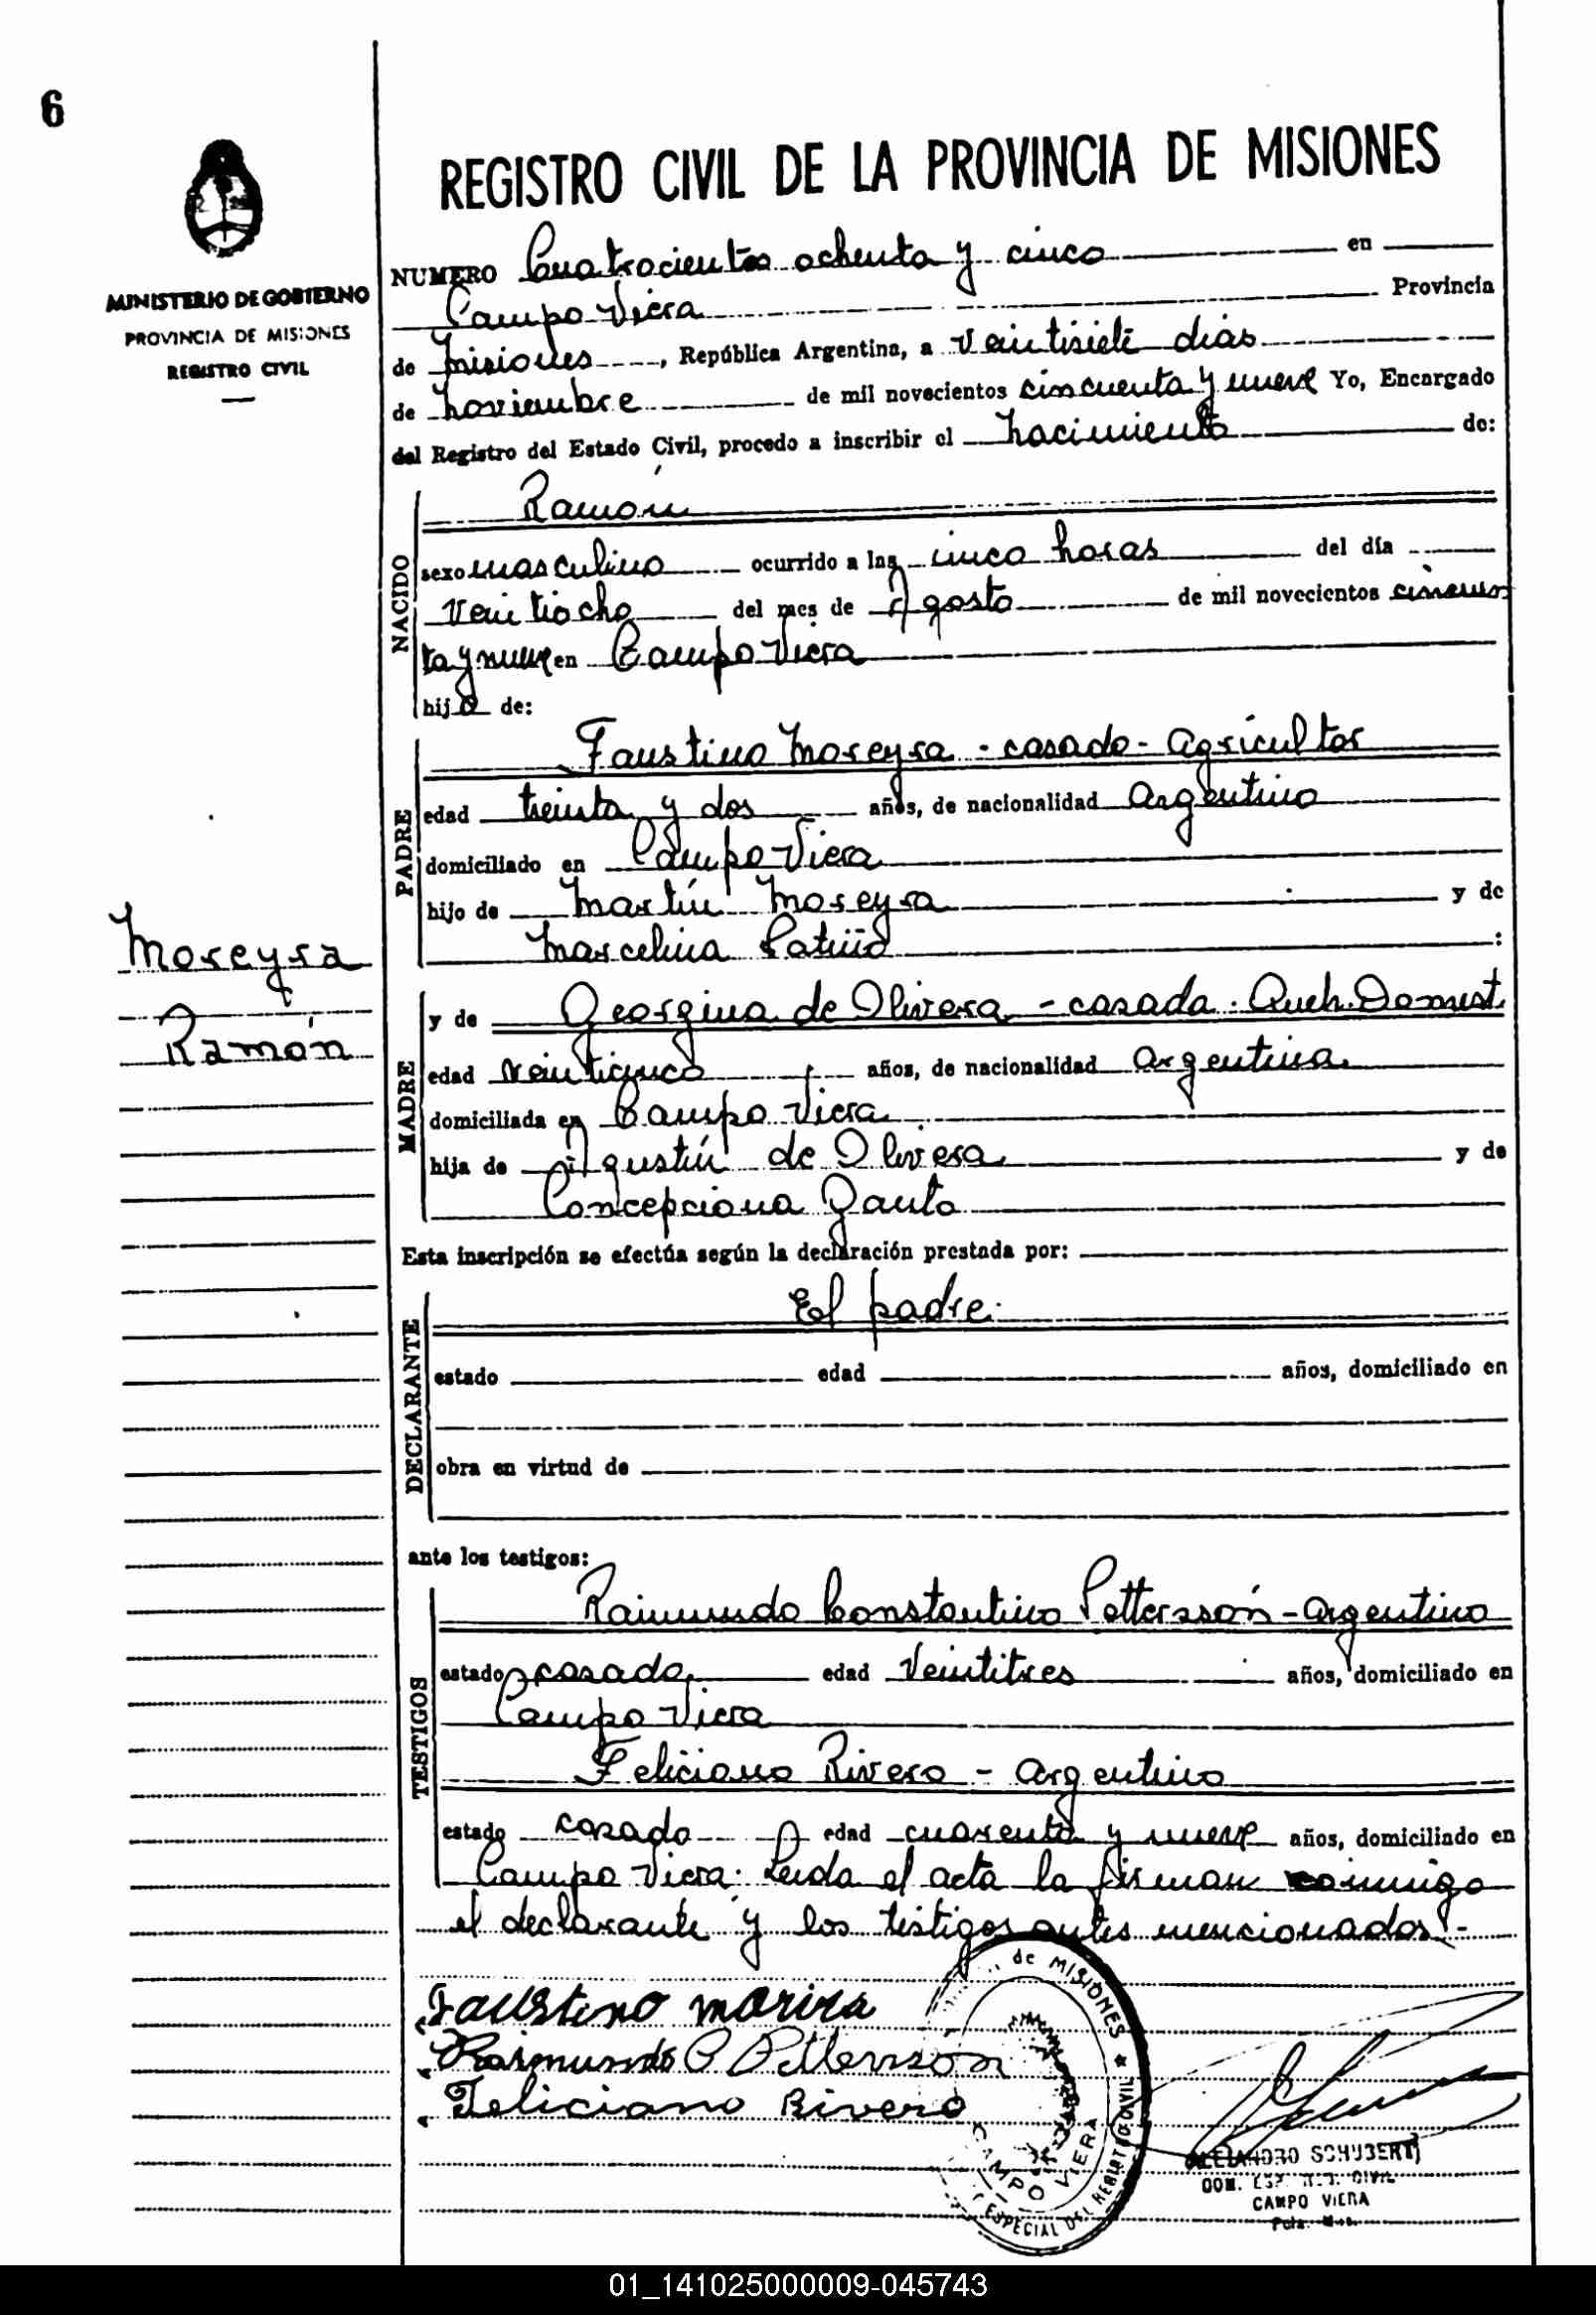 6
REGISTRO CIVIL DE LA PROVINCIA DE MISIONES
MINISTERIO DE GOBIERNO
PROVINCIA DE MISIONES
REGISTRO CIVIL
NUMERO Cuatrocientos ochenta y cinco en
Campo Viera Provincia
de Misiones, República Argentina, a Veintisiete dias
de Noviembre de mil novecientos cincuenta y nueve Yo, Encargado
del Registro del Estado Civil, procedo a inscribir el nacimiento de:
NACIDO
Ramón
sexo masculino ocurrido a las cinco horas del día
Veintiocho del mes de Agosto de mil novecientos cincuen
ta y nueve en Campo Viera
hijo de:
PADRE
Faustino Moreyra - casado - Agricultor
edad treinta y dos años, de nacionalidad Argentino
domiciliado en Campo Viera
hijo de Martín Moreyra y de
Marcelina
Moreyra
Ramón
MADRE
y de Georgina de Olivera - casada. Queh. Domest.
edad Veinticinco años, de nacionalidad Argentina
domiciliada en Campo Viera
hija de Agustín de Olivera y de
Concepciona Gauto
Esta inscripción se efectúa según la declaración prestada por:
DECLARANTE
El padre.
estado edad años, domiciliado en
obra en virtud de
ante los testigos:
TESTIGOS
Raimundo Constantino Pettersson - Argentino
estado casado edad Veintitres años, domiciliado en
Campo Viera
Feliciano Rivero - Argentino
estado casado edad cuarenta y nueve años, domiciliado en
Campo Viera. Leida el acta la firman conmigo
el declarante y los testigos antes mencionados.-
Faustino morira
Raimundo C Pettersson
Feliciano Rivero
de MISIONES ★
CAMPO VIERA
ESPECIAL DEL REGISTRO CIVIL
ALEJANDRO SCHUBERT
CAMPO VIERA
01_141025000009-045743